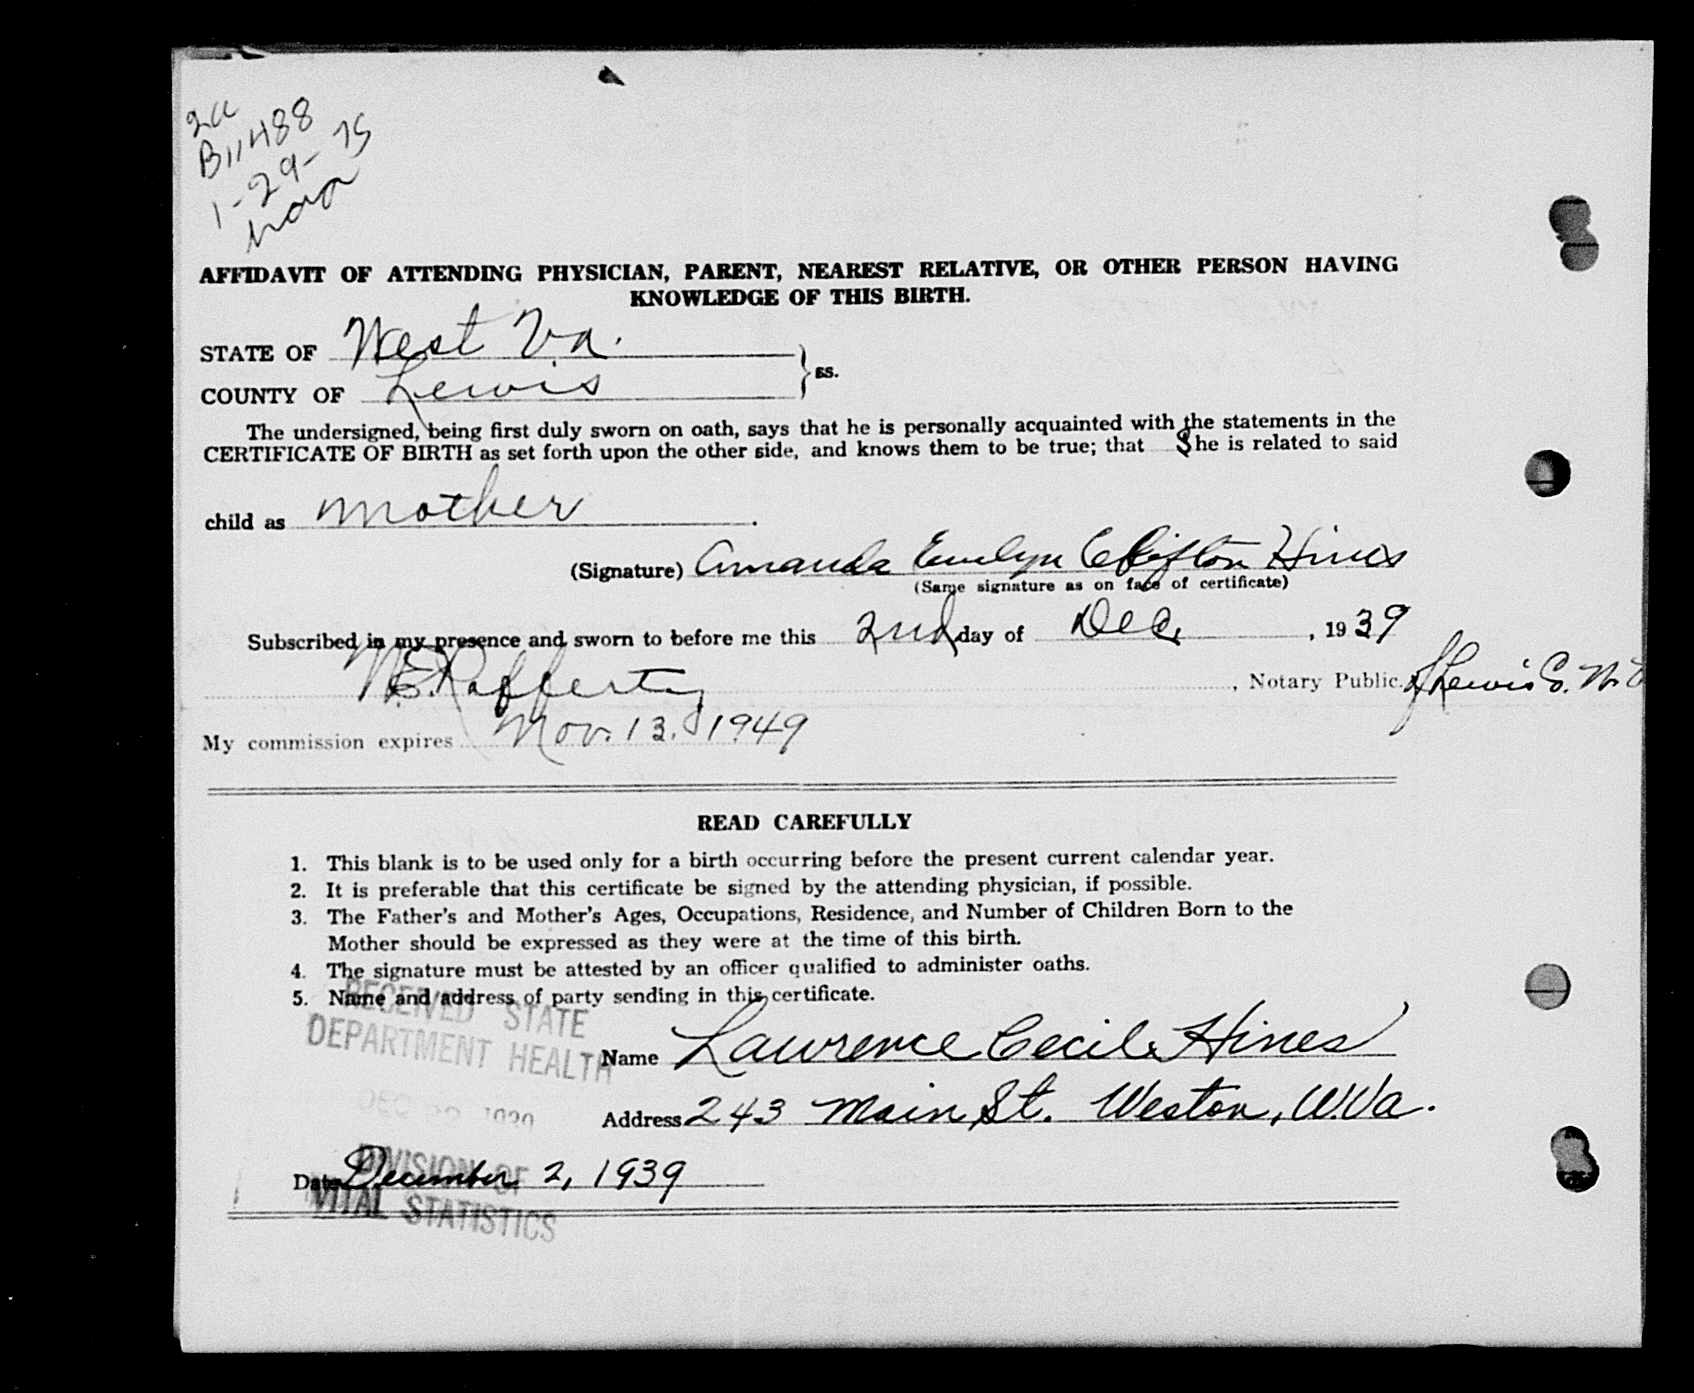 2a
B11488
1-29-75
AFFIDAVIT OF ATTENDING PHYSICIAN, PARENT, NEAREST RELATIVE, OR OTHER PERSON HAVING
KNOWLEDGE OF THIS BIRTH.
STATE OF West Va.
ss.
COUNTY OF Lewis
The undersigned, being first duly sworn on oath, says that he is personally acquainted with the statements in the
CERTIFICATE OF BIRTH as set forth upon the other side, and knows them to be true; that She is related to said
child as mother.
(Signature) Amanda Evelyn Clifton Hines
(Same signature as on face of certificate)
Subscribed in my presence and sworn to before me this 2nd day of Dec, 1939
Rafferty, Notary Public. Lewis Co.
My commission expires Nov. 13, 1949
READ CAREFULLY
1. This blank is to be used only for a birth occurring before the present current calendar year.
2. It is preferable that this certificate be signed by the attending physician, if possible.
3. The Father's and Mother's Ages, Occupations, Residence, and Number of Children Born to the
Mother should be expressed as they were at the time of this birth.
4. The signature must be attested by an officer qualified to administer oaths.
5. Name and address of party sending in this certificate.
RECEIVED STATE
DEPARTMENT HEALTH
Name Lawrence Cecil Hines
DEC
Address 243 Main St. Weston, W.Va.
DIVISION OF
Date December 2, 1939
VITAL STATISTICS